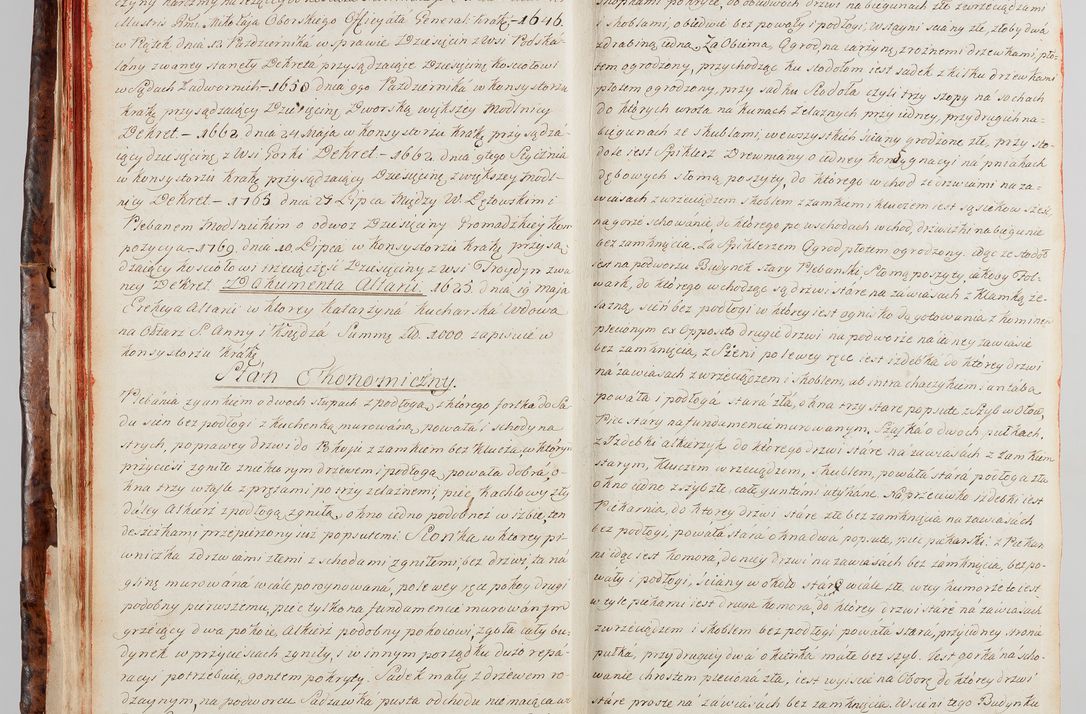 Illustris Rdi. Mikołaja Oborskiego Officyała General: krakg – 1646.
w Piątek dnia 12 Pazdziernika w sprawie Dziesięcin z Wsi Podska-
lany zwaney stanęły Dekreta przysądzaiące Dziesięcinę kosciołowi
w Sądach Zadwornich – 1650 dnia 9go Pazdziernika w konsystorzu
krakg przysądzaiący Dziesięcinę Dworską większey Modlnicy
Dekret – 1662 dnia 24 Maja w konsystorzu krakg przysądza-
iący dziesięcinę z Wsi Gorki Dekret – 1662 dnia 9tego Stycznia
w konsystorzu krakg przysądzaiący Dziesięcinę z większey Modl-
nicy Dekret – 1765 dnia 27 Lipca Między W. Lętowskim i
Plebanem Modlnickim o odwoz Dziesięciny Gromadzkiey Kom-
pozycya – 1769 dnia 10 Lipca w konsystorzu krakg przysą-
dzaiący kosciołowi trzecią część Dziesięciny z Wsi Troydyn zwa-
ney Dekret. Dokumenta Altarii 1625 dnia 19 maja
Erekcya Altarii w ktorey Katarzyna kucharska Wdowa
na Ołtarz S. Anny i Księdza Summę złł. 1000. zapisuie w
konsystorzu krakg
Plan Ekonomiczny.
Plebania z gankiem o dwoch słupach z podłogą, z ktorego fortka do Sa-
du sień bez podłogi z kuchenką murowaną, powała i schody na
strych, po prawey drzwi do Pokoju z zamkiem bez klucza, w ktorym
przyciesi zgniłe z niektorym drzewem i podłogą, powała dobra, o-
kna trzy w tafle z prętami po trzy zelaznemi, piec kachlowy zły
daley Alkierz z podłogą zgniłą, okno iedno podobneż w izbie, ten
deszczkami przepierzony iuż popsutemi Sionka w ktorey pi-
wniczka z drzwiami złemi z schodami zgniłemi, bez drzwi, ta na
glinę murowana wcale porynowana, po lewey ręce pokoy drugi
podobny pierwszemu, piec tylko na fundamencie murowanym
grzeiący dwa pokoie, Alkierz podobny pokoiowi, zgoła cały bu-
dynek w przyciesiach zgniły, i w innym porządku dużo repa-
racyi potrzebuie, gontem pokryty. Sadek mały z drzewem ro-
dzaynym, na podworcu Sadzawka pusta odchodu nie maiąca w
szopkami pokryte, do obudwoch drzwi na biegunach złe z wrzeciądzami
i skoblami, obiedwie bez powały i podłogi, w stayni ściany złe, złoby dwa
z drabiną iedną. Za Oboma, Ogrod na iarzynę z roznemi drzewkami, pło-
tem ogrodzony, przychodząc ku stodołom iest sadek z kilku drzewkami
płotem ogrodzony, przy sadku Stodoła czyli trzy szopy na sochach
do ktorych wrota na kunach żelaznych przy iedney, przy drugich na-
biegunach ze skublami, we wszystkich ściany grodzone złe, przy sto-
dole iest Spiklerz Drewniany o iedney kondygnacyi na pniakach
dębowych słomą poszyty, do ktorego wchod ze drzwiami na za-
wiasach z wrzeciądzem skoblem z zamkiem i kluczem iest sąsiekow sześć,
na gorze schowanie, do ktorego po wschodach wchod, drzwiczki na biegunie
bez zamknięcia. Za Spiklerzem Ogrod płotem ogrodzony. Idąc ze stodoł
iest na podworzu Budynek stary Plebanski Słomą poszyty iakoby Fol-
wark, do ktorego wchodząc są drzwi stare na zawiasach z klamką że-
lazną, sień bez podłogi w ktorey iest ognisko do gotowania z kominem
plecionym ex Opposito drugie drzwi na podworze na iedney zawiasie
bez zamknięcia, z Sieni po lewey ręce iest izdebka do ktorey drzwi
na zawiasach z wrzeciądzem i skoblem, ab intra haczykiem i antabą
powała i podłoga stara zła, okna trzy stare popsute z Szyb w Ołow,
Piec stary na fundamencie murowanym, Szafka o dwoch pułkach.
z Izdebki alkierzyk do ktorego drzwi stare na zawiasach z zamkiem
starym, kluczem wrzeciądzem, skublem, powała stara podłoga zła
okno iedne z szyb złe, całe guntami utykane. Naprzeciwko izdebki iest
Piekarnia, do ktorey drzwi stare złe bez zamknięcia na zawiasach
bez podłogi, powała stara okna dwa popsute, piec piekarski: z Piekar-
ni idąc iest komora, do niey drzwi na zawiasach bez zamknięcia, bez po-
wały i podłogi, sciany w około stare wcale złe, w tey komorze ieste iest
w tyle piekarni iest druga komora do ktorey drzwi stare na zawiasach
z wrzeciądzem i skoblem bez podłogi powała stara, przy iedney stronie
pułka, przy drugiey dwa okienka małe bez szyb. Iest gorka na scho-
wanie chrostem pleciona zła, iest wyiscie na Oborę do ktorey drzwi
stare proste na zawiasach bez zamknięcia. W sieni tego Budynku